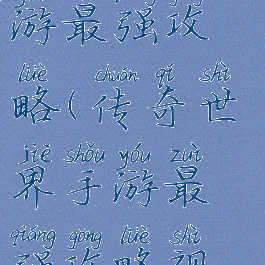 游最强攻
lüè chuán qí shì
略(传奇世
jiè shǒu yóu zuì
界手游最
qiáng gōng lüè shì
强攻略视